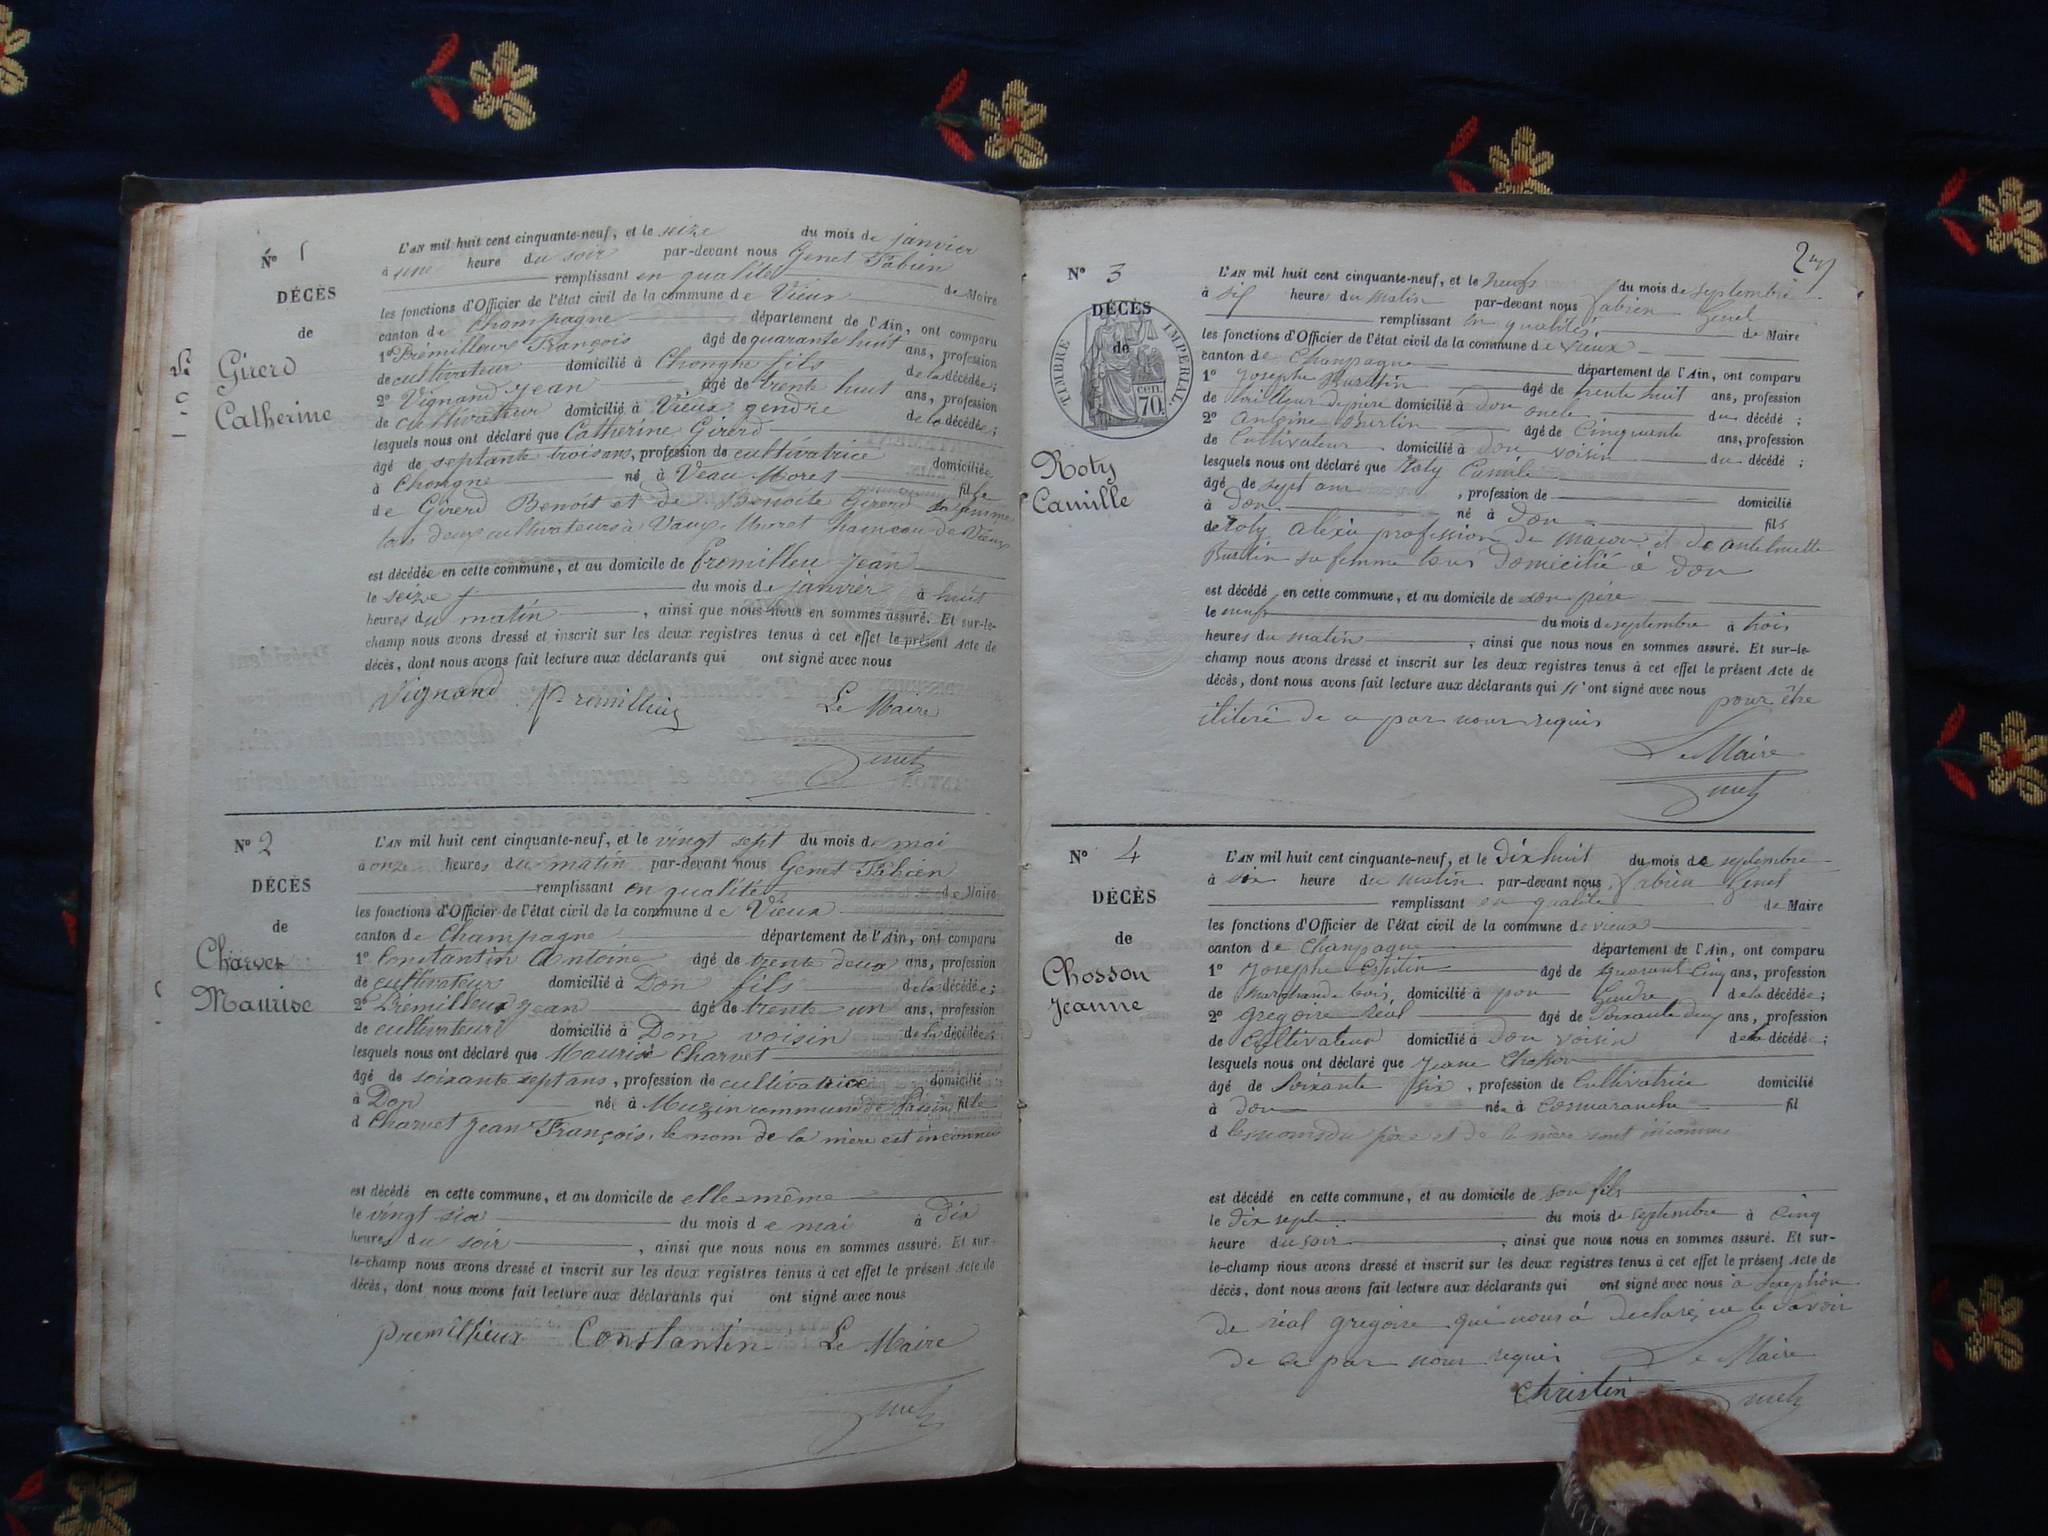 N° 1
DÉCÈS
de
Girerd
Catherine
L'AN mil huit cent cinquante-neuf, et le seize du mois de janvier
à une heure du soir par-devant nous Genet Fabien
remplissant en qualité de Maire
les fonctions d'Officier de l'état civil de la commune de Vieux
canton de Champagne département de l'Ain, ont comparu
1° Prémilleux François âgé de quarante huit ans, profession
de cultivateur domicilié à Chongne fils de la décédée;
2° Vignand jean âgé de trente huit ans, profession
de cultivateur domicilié à Vieux gendre de la décédée;
lesquels nous ont déclaré que Catherine Girerd
âgé de septante trois ans, profession de cultivatrice domiciliée
à Chongne né à Veau Mores fille
de Girerd Benoit et de Benoite Girerd sa femme
tous deux cultivateurs à Vaux Morret hameau de Vieux
est décédée en cette commune, et au domicile de Premilleu jean
le seize du mois de janvier à huit
heures du matin, ainsi que nous nous en sommes assuré. Et sur-le-
champ nous avons dressé et inscrit sur les deux registres tenus à cet effet le présent Acte de
décès, dont nous avons fait lecture aux déclarants qui ont signé avec nous
Vignand Premillieux Le Maire
Genet
N° 2
DÉCÈS
de
Charvet
Maurise
L'AN mil huit cent cinquante-neuf, et le vingt sept du mois de mai
à onze heures du matin par-devant nous Genet Fabien
remplissant en qualité de Maire
les fonctions d'Officier de l'état civil de la commune de Vieux
canton de Champagne département de l'Ain, ont comparu
1° Constantin Antoine âgé de trente deux ans, profession
de cultivateur domicilié à Don fils de la décédée;
2° Prémilleux jean âgé de trente un ans, profession
de cultivateur domicilié à Don voisin de la décédée;
lesquels nous ont déclaré que Maurise Charvet
âgé de soixante sept ans, profession de cultivatrice domicilié
à Don né à Muzin commune de fille
d Charvet jean François, le nom de la mère est inconnu
est décédé en cette commune, et au domicile de elle même
le vingt six du mois de mai à dix
heures du soir, ainsi que nous nous en sommes assuré. Et sur-
le-champ nous avons dressé et inscrit sur les deux registres tenus à cet effet le présent Acte de
décès, dont nous avons fait lecture aux déclarants qui ont signé avec nous
premillieux Constantin Le Maire
Genet
N° 3
DÉCÈS
de
TIMBRE IMPÉRIAL
70 cen.
Roty
Camille
L'AN mil huit cent cinquante-neuf, et le neuf du mois de septembre
à six heure du matin par-devant nous fabien Genet
remplissant en qualité de Maire
les fonctions d'Officier de l'état civil de la commune de vieux
canton de Champagne département de l'Ain, ont comparu
1° Josephe Burtin âgé de trente huit ans, profession
de tailleur de pière domicilié à don oncle du décédé;
2° Antoine Burtin âgé de Cinquante ans, profession
de Cultivateur domicilié à don voisin du décédé;
lesquels nous ont déclaré que Roty Camile
âgé de sept ans, profession de domicilié
à don né à don fils
de Roty Alexis profession de maçon et de antelmette
Burtin sa femme tous domicilié à don
est décédé en cette commune, et au domicile de son père
le neuf du mois de septembre à trois
heures du matin, ainsi que nous nous en sommes assuré. Et sur-le-
champ nous avons dressé et inscrit sur les deux registres tenus à cet effet le présent Acte de
décès, dont nous avons fait lecture aux déclarants qui n'ont signé avec nous pour être
iliteré de ce par nous requis
Le Maire
Genet
N° 4
DÉCÈS
de
Chosson
Jeanne
L'AN mil huit cent cinquante-neuf, et le dix huit du mois de septembre
à six heure du matin par-devant nous fabien Genet
remplissant en qualité de Maire
les fonctions d'Officier de l'état civil de la commune de vieux
canton de Champagne département de l'Ain, ont comparu
1° Josephe âgé de quarant Cinq ans, profession
de marchand de bois, domicilié à Gendre de la décédée;
2° gregoire Réal âgé de Soixante deux ans, profession
de Cultivateur domicilié à don voisin de la décédé;
lesquels nous ont déclaré que Jeane Chosson
âgé de Soixante six, profession de Cultivatrice domicilié
à don née à Cormaranche fil
d les noms du père et de la mère sont inconnus
est décédé en cette commune, et au domicile de son fils
le dix sept du mois de septembre à cinq
heure du soir, ainsi que nous nous en sommes assuré. Et sur-
le-champ nous avons dressé et inscrit sur les deux registres tenus à cet effet le présent Acte de
décès, dont nous avons fait lecture aux déclarants qui ont signé avec nous à
de réal gregoire qui nous à declaré ne le savoir
de ce par nous requis Le Maire
Christin Genet